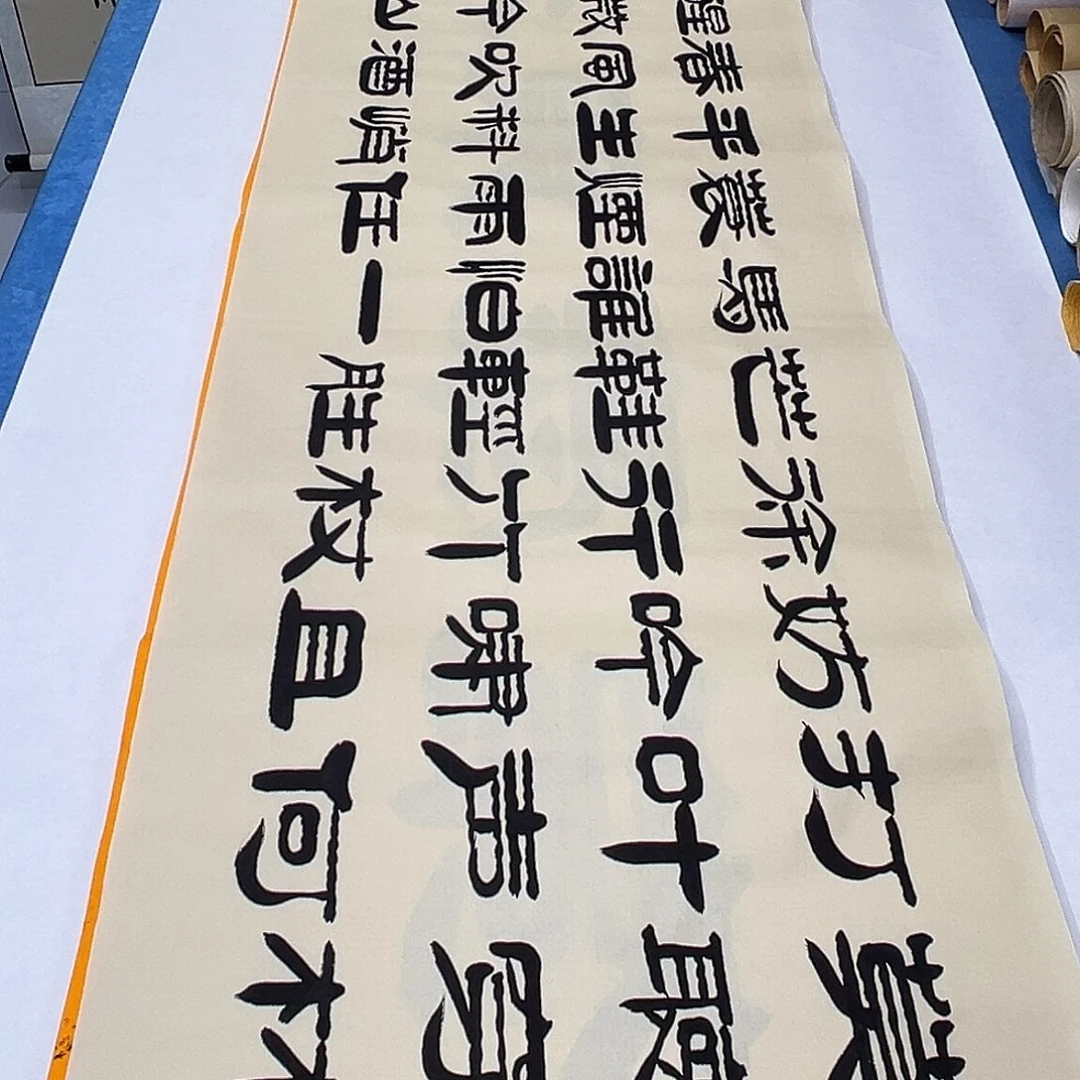 莫聽穿林
打叶声何
妨吟嘯且
徐行竹杖
芒鞋輕胜
馬誰怕一
蓑煙雨任
平生料峭
春風吹酒
醒微冷山